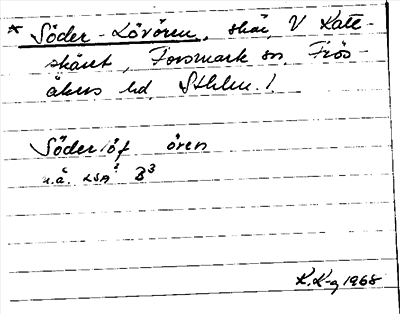 * Söder-Lövören, skär, V Katt-
skäret, Forsmark sn, Frös-
åkers hd, Sthlm. l.
Söderlöf ören
u.å. LSA² B³
K.K-g 1968